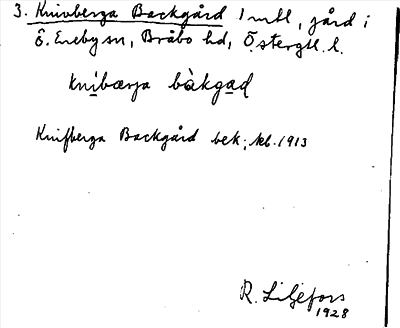 3. Knivberga Backgård 1 mtl, gård i
Ö. Eneby sn, Bråbo hd, Östergtl. l.
knı̀bærja bàkgad
Knifberga Backgård bek. jkb. 1913
R. Liljefors
1928